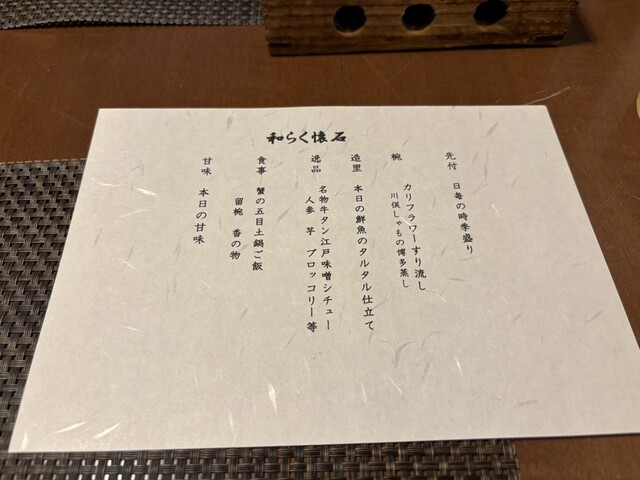 和らく懐石
先付 日毎の時季盛り
椀 カリフラワーすり流し
川俣しゃもの博多蒸し
造里 本日の鮮魚のタルタル仕立て
逸品 名物牛タン江戸味噌シチュー
人参 芋 ブロッコリー等
食事 蟹の五目土鍋ご飯
留椀 香の物
甘味 本日の甘味